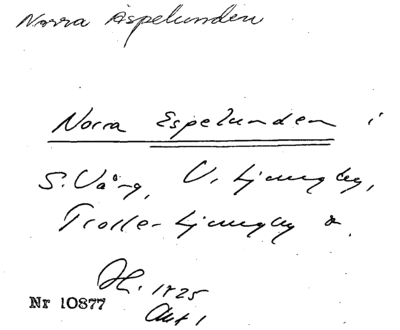 Norra Äspelunden
Norra Espelunden i
S. Vång, V. Ljungby,
Trolle-Ljungby
1825
Nr 10877
Akt 1